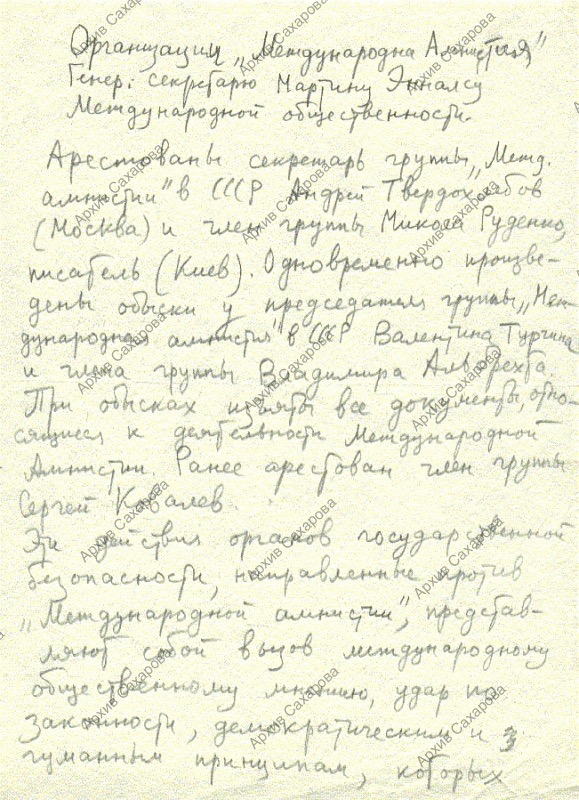 Организации „Международна Амнистия"
Генер. секретарю Мартину Энналсу
Международной общественности.
Арестованы секретарь группы „Межд.
амнистии" в СССР Андрей Твердохлебов
(Москва) и член группы Микола Руденко,
писатель (Киев). Одновременно произве-
дены обыски у председателя группы „Меж-
дународная амнистия" в СССР Валентина Турчина
и члена группы Владимира Альбрехта.
При обысках изъяты все документы, отно-
сящиеся к деятельности Международной
Амнистии. Ранее арестован член группы
Сергей Ковалев.
Эти действия органов государственной
безопасности, направленные против
„Международной амнистии", представ-
ляют собой вызов международному
общественному мнению, удар по
законности, демократическим и
гуманным принципам, которых
Архив Сахарова